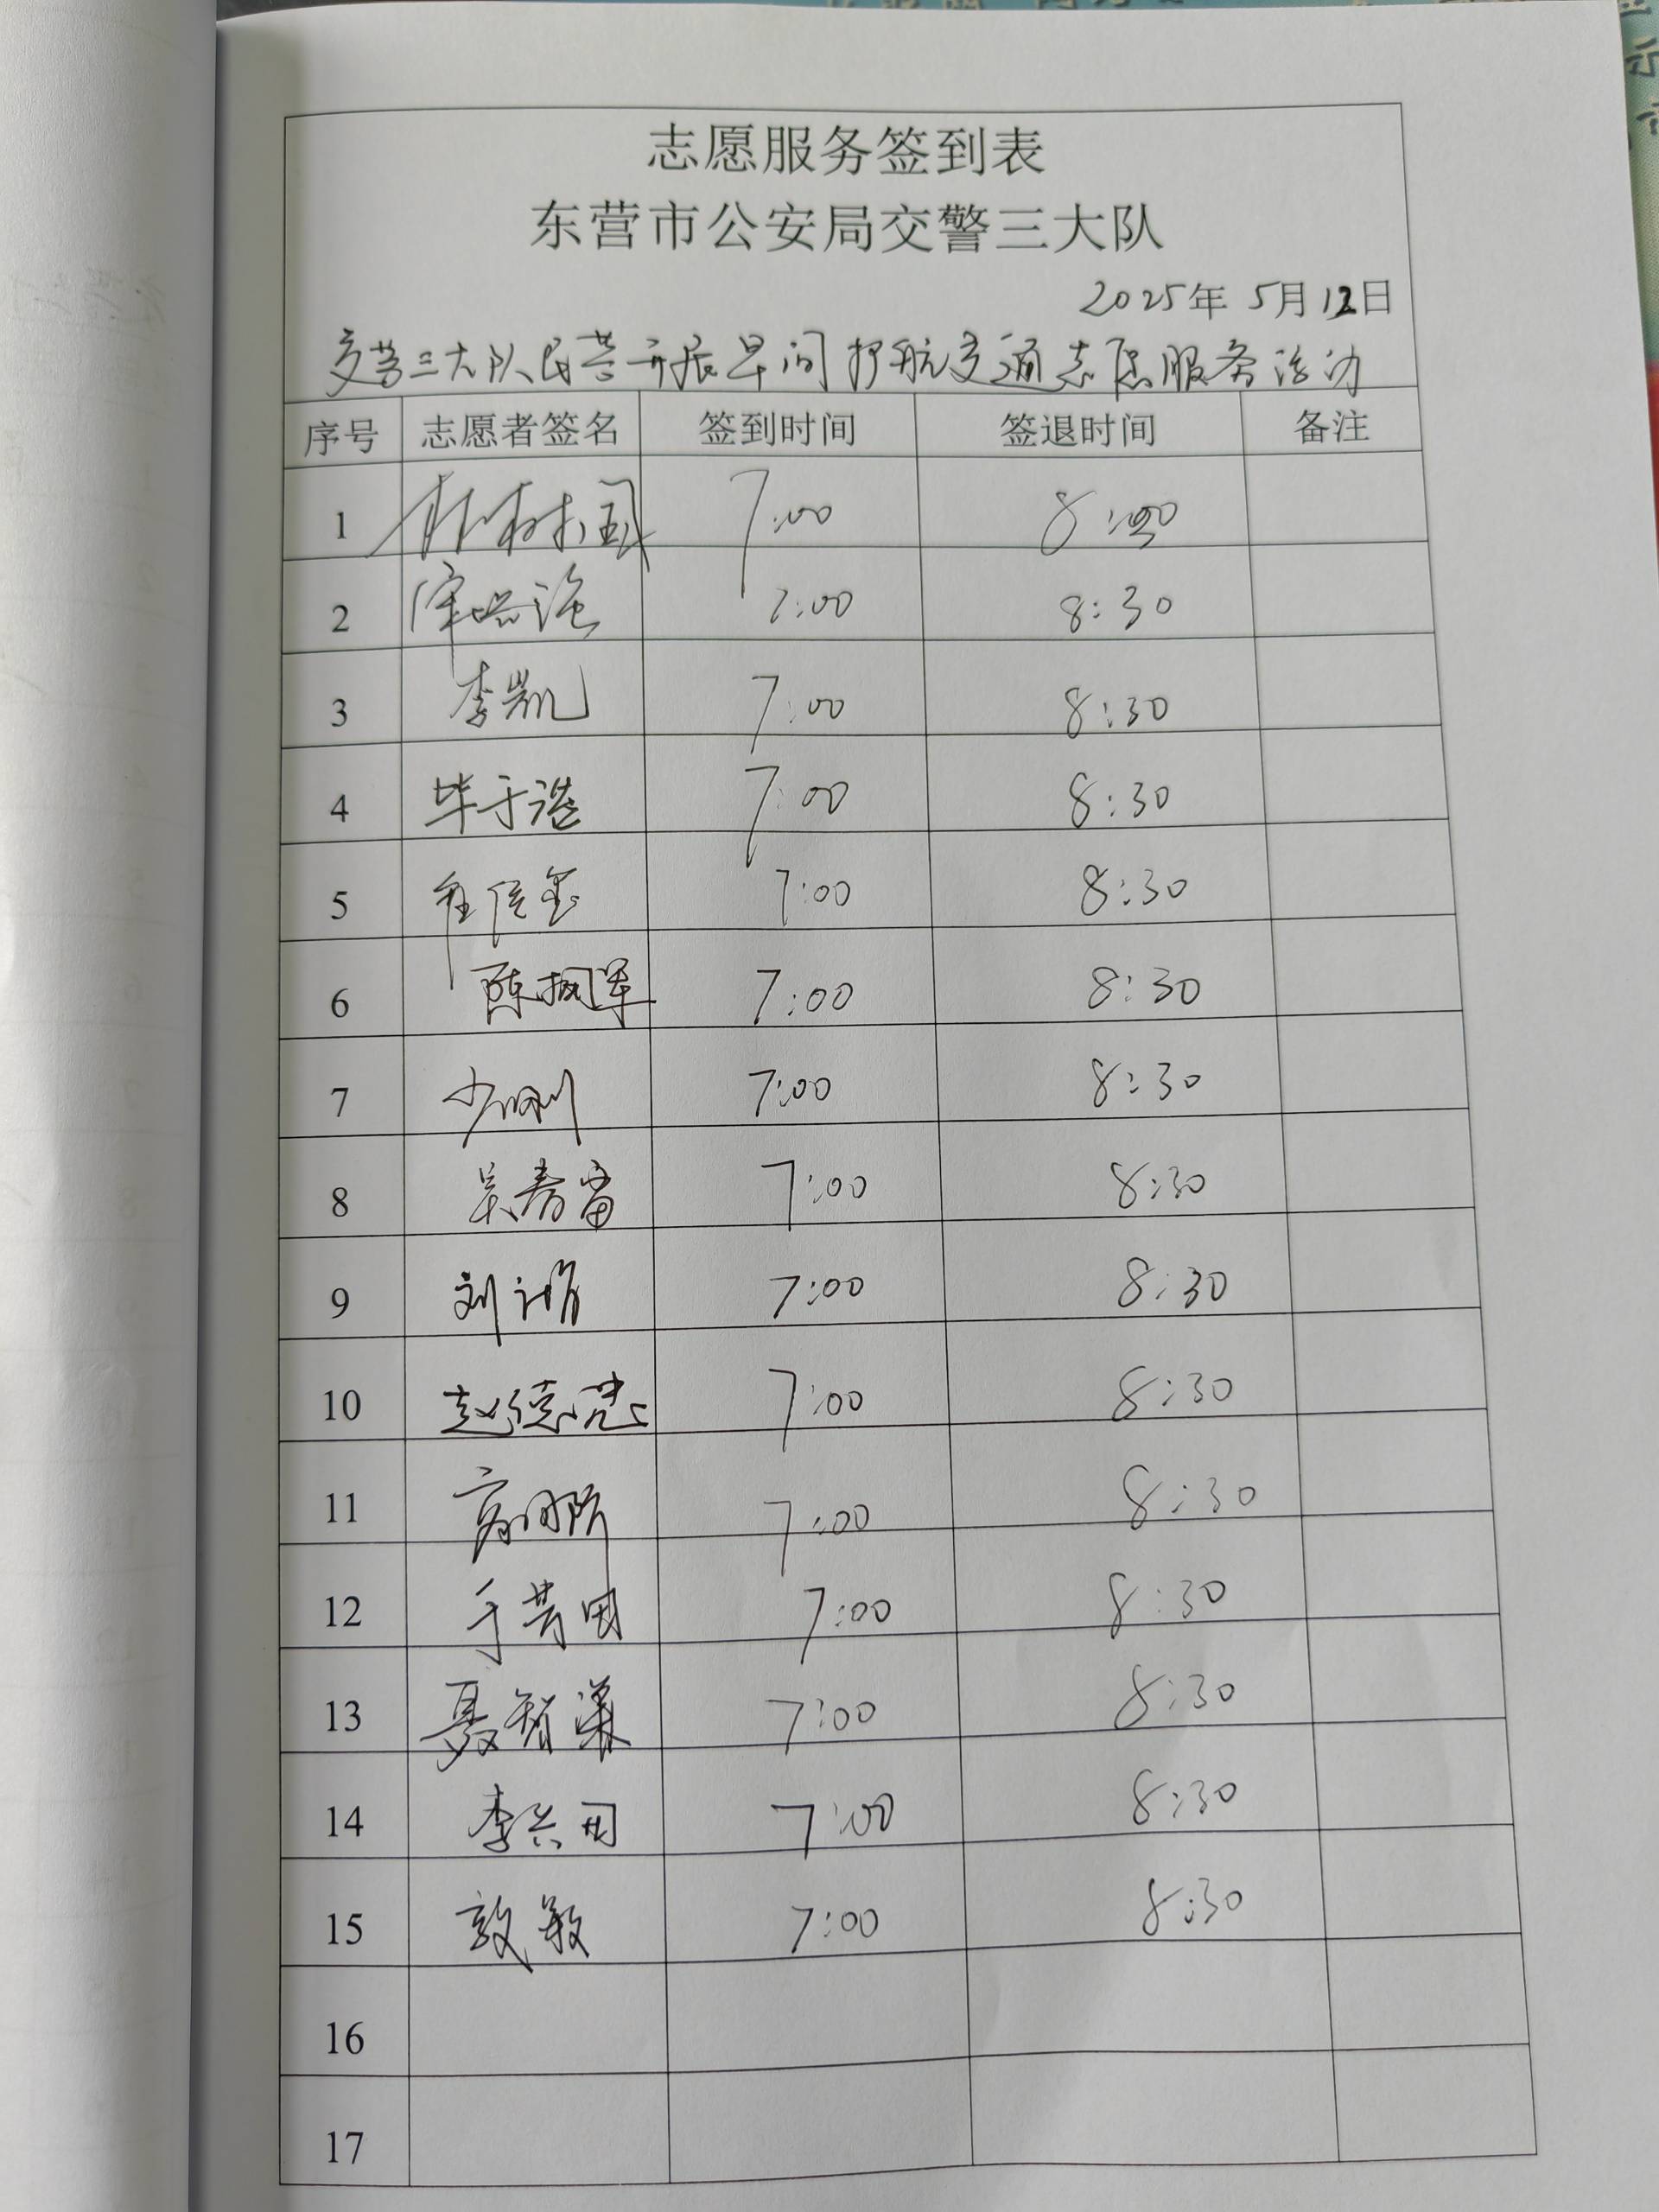 志愿服务签到表
东营市公安局交警三大队
2025年 5月12日
交警三大队民警开展早间护航交通志愿服务活动
序号 志愿者签名 签到时间 签退时间 备注
1 7:00 8:30
2 7:00 8:30
3 李凯 7:00 8:30
4 毕于浩 7:00 8:30
5 7:00 8:30
6 陈佩军 7:00 8:30
7 7:00 8:30
8 吴春雷 7:00 8:30
9 刘 7:00 8:30
10 赵德 7:00 8:30
11 7:00 8:30
12 7:00 8:30
13 聂智 7:00 8:30
14 李兴田 7:00 8:30
15 敏 7:00 8:30
16
17